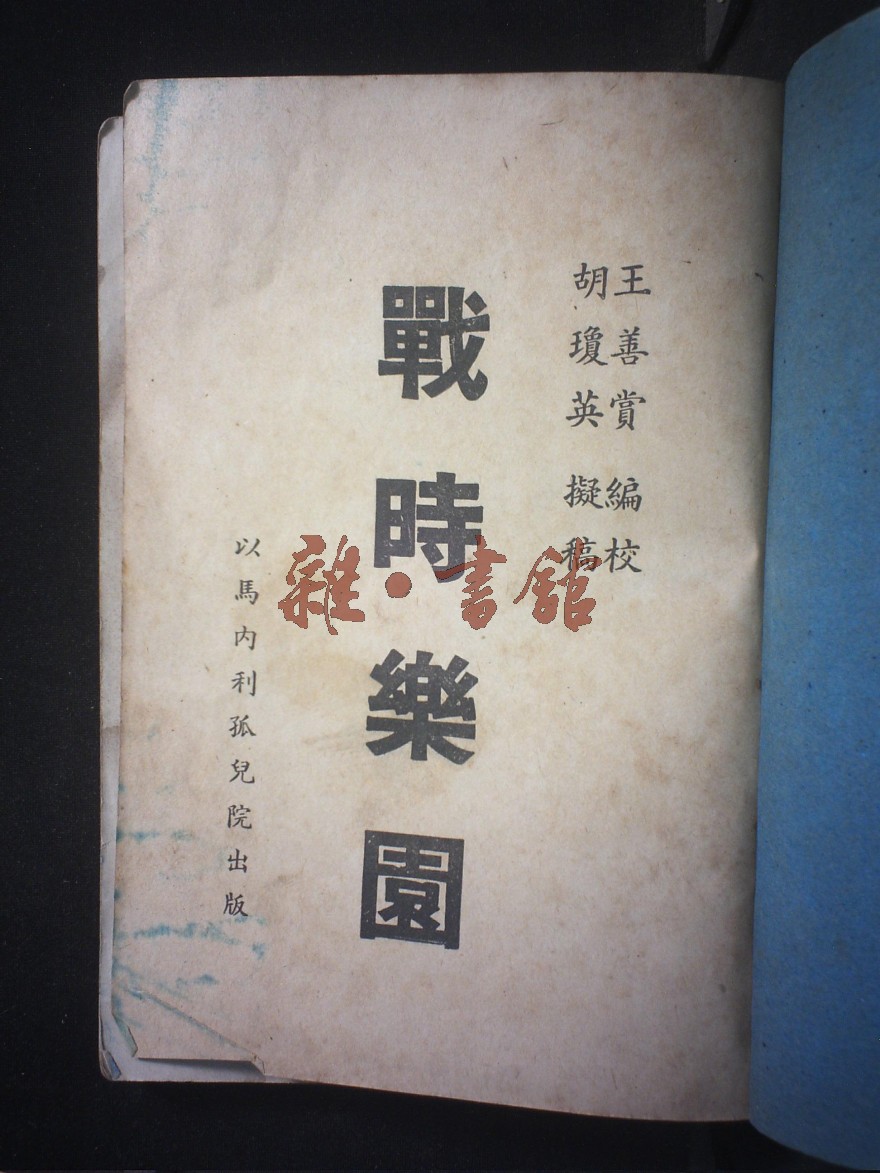 王善賞 編校
胡瓊英 擬稿
戰時樂園
以馬內利孤兒院出版
雜·書館